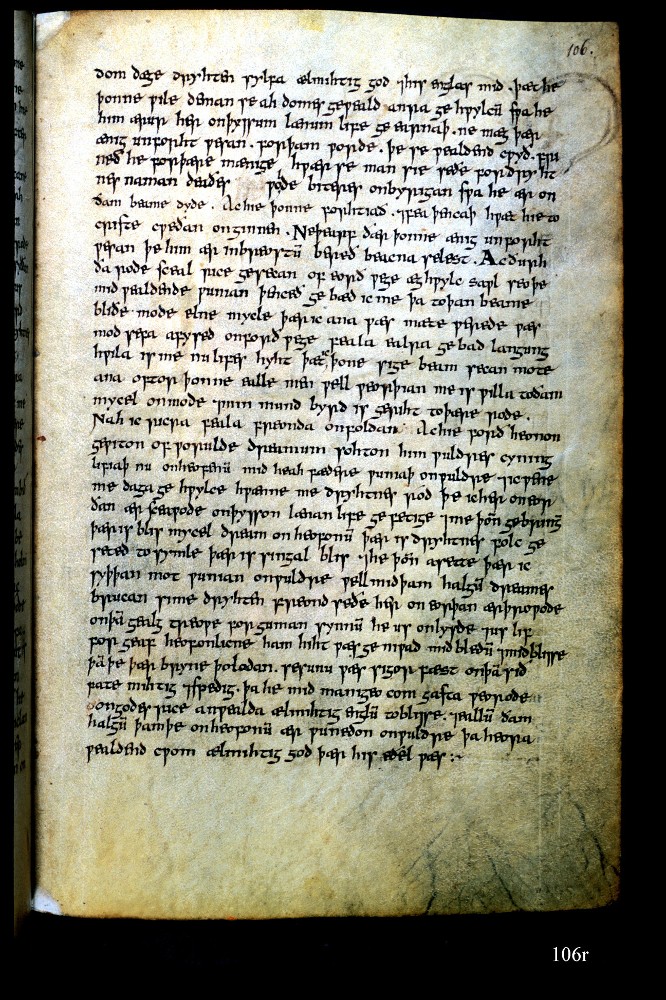 dom dæge dryhten sylfa ælmihtig god ⁊his englas mid . þæt he
þonne ƿile deman se ah domes geƿeald anra ge hƿylcū sƿa he
him ærur her onþyssum lænum life ge earnaþ . ne mæg þær
ænig unforht ƿesan . forþam ƿorde . þe se ƿealdend cƿyð . fri
neð he forþære mænige hƿær se man sie seðe fordryht
nes naman deaðes ƿolde biteres onbyrigan sƿa he ær on
ðam beame dyde . Ac hie þonne forhtiað . ⁊fea þencaþ hƿæt hie to
criste cƿeðan onginnen . Neþearf ðær þonne ænig unforht
ƿesan þe him ær inbreostū bereð beacna selest . Ac ðurh
ða rode sceal rice gesecan of eorð ƿege æghƿylc saƿl seo þe
mid ƿealdende ƿunian þenceð ge bæd ic me þa toþan beame
bliðe mode elne mycle þær ic ana ƿæs mæte ƿerede ƿæs
mod sefa afysed onforð ƿege feala ealra ge bad langung
hƿila is me nu lifes hyht þæt ic þone sige beam secan mote
ana oftor þonne ealle men ƿell ƿeorþian me is ƿilla toðam
mycel onmode ⁊min mund byrd is geriht toþære rode .
Nah ic ricra feala freonda onfoldan . Ac hie forð heonon
geƿiton of ƿorulde dreamum sohton him ƿuldres cyning
lifiaþ nu onheofenū mid heah fædere ƿuniaþ onƿuldre ⁊ic ƿene
me daga ge hƿylce hƿænne me dryhtnes rod þe ic her on eor
ðan ær sceaƿode onþysson lænan life ge fetige ⁊me þōn gebringe
þær is blis mycel dream on heofonū þær is dryhtnes folc ge
seted to symle þær is singal blis ⁊he þōn asette þær ic
syþþan mot ƿunian onƿuldre ƿell midþam halgū dreames
brucan si me dryhten freond seðe her on eorþan ær þroƿode
onþā gealg treoƿe for guman synnū he us onlysde ⁊us lif
for geaf heofonlicne ham hiht ƿæs ge niƿad mid bledū ⁊midblisse
þā þe þær bryne þolodan . se sunu ƿæs sigor fæst onþā sið
fate mihtig ⁊spedig . þa he mid manigeo com gasta ƿeorode
ongodes rice anƿealda ælmihtig englū toblisse . ⁊eallū ðam
halgū þamþe onheofonū ær ƿunedon onƿuldre þa heora
ƿealdend cƿom ælmihtig god þær his eðel ƿæs :~
106.
106r